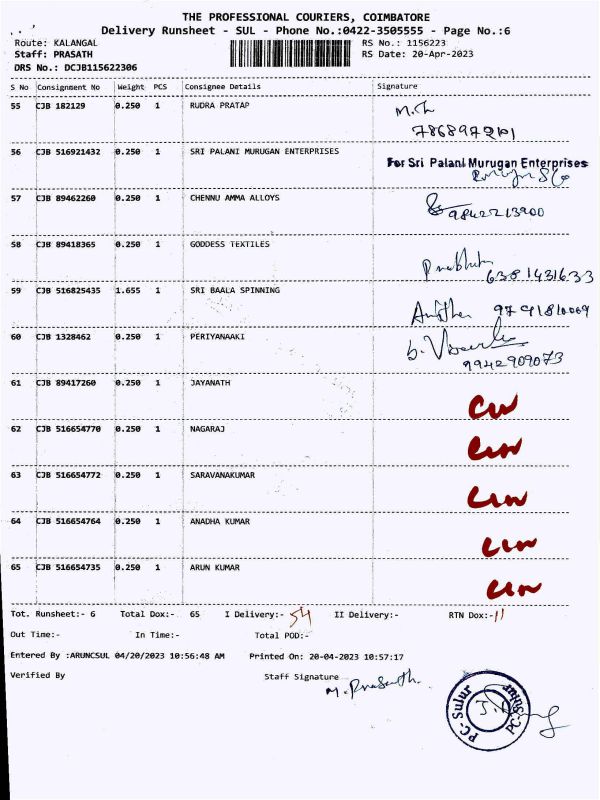 THE PROFESSIONAL COURIERS, COIMBATORE
Delivery Runsheet - SUL - Phone No.:0422-3505555 - Page No.:6
Route: KALANGAL RS No.: 1156223
Staff: PRASATH RS Date: 20-Apr-2023
DRS No.: DCJB115622306
S No Consignment No Weight PCS Consignee Details Signature
55 CJB 182129 0.250 1 RUDRA PRATAP
56 CJB 516921432 0.250 1 SRI PALANI MURUGAN ENTERPRISES For Sri Palani Murugan Enterprises
57 CJB 89462260 0.250 1 CHENNU AMMA ALLOYS
9842213900
58 CJB 89418365 0.250 1 GODDESS TEXTILES
Prabhu 6381431633
59 CJB 516825435 1.655 1 SRI BAALA SPINNING
9791810069
60 CJB 1328462 0.250 1 PERIYANAAKI
9942909073
61 CJB 89417260 0.250 1 JAYANATH
62 CJB 516654770 0.250 1 NAGARAJ
63 CJB 516654772 0.250 1 SARAVANAKUMAR
64 CJB 516654764 0.250 1 ANADHA KUMAR
65 CJB 516654735 0.250 1 ARUN KUMAR
Tot. Runsheet:- 6 Total Dox:- 65 I Delivery:- 54 II Delivery:- RTN Dox:- 11
Out Time:- In Time:- Total POD:-
Entered By :ARUNCSUL 04/20/2023 10:56:48 AM Printed On: 20-04-2023 10:57:17
Verified By Staff Signature
M. Prasanth.
PC-Sulur PC-Sulur